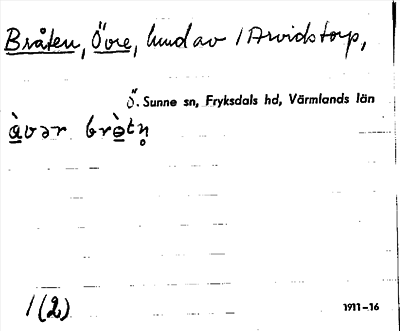 Bråten, Övre, hmd av 1 Arvidstorp,
Ö. Sunne sn, Fryksdals hd, Värmlands län
àvər bròtn̥
1(2)
1911–16